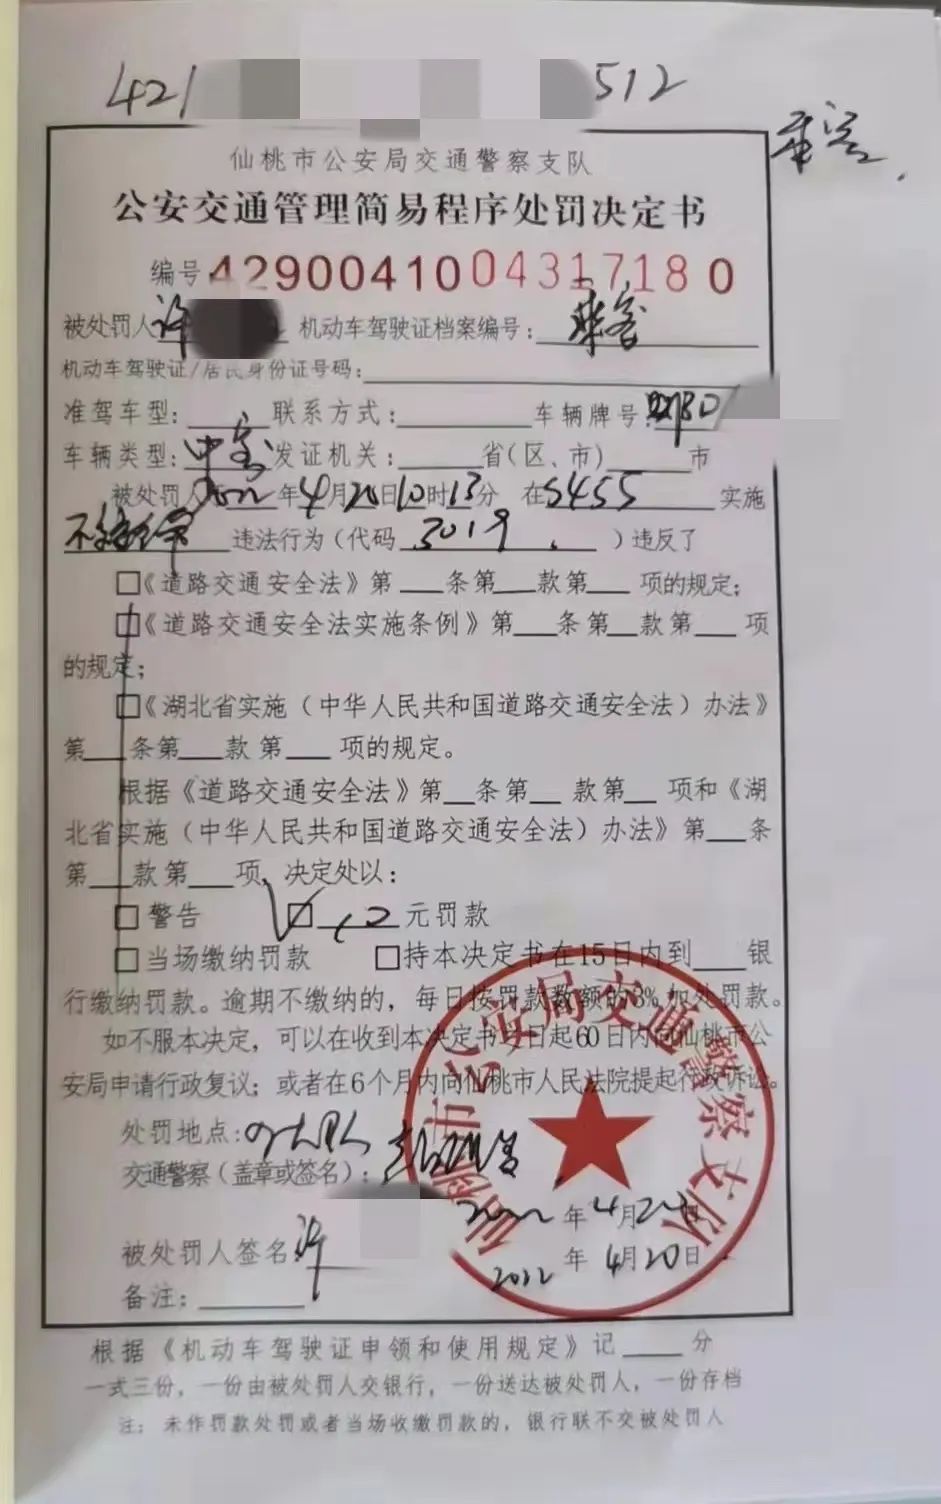 421 512
乘客
仙桃市公安局交通警察支队
公安交通管理简易程序处罚决定书
编号 4290041004317180
被处罚人 许 机动车驾驶证档案编号: 乘客
机动车驾驶证/居民身份证号码:
准驾车型: 联系方式: 车辆牌号
车辆类型: 中客 发证机关: 省(区、市) 市
被处罚人 2022年4月20日10时13分 在S455 实施
违法行为(代码 3019 )违反了
□《道路交通安全法》第 条第 款第 项的规定;
□《道路交通安全法实施条例》第 条第 款第 项
的规定;
□《湖北省实施(中华人民共和国道路交通安全法)办法》
第 条第 款 第 项的规定。
根据《道路交通安全法》第 条第 款第 项和《湖
北省实施(中华人民共和国道路交通安全法)办法》第 条
第 款第 项, 决定处以:
□ 警告 □ 元罚款
□ 当场缴纳罚款 □持本决定书在15日内到 银
行缴纳罚款。逾期不缴纳的,每日按罚款数额的3%加处罚款。
如不服本决定,可以在收到本决定书之日起60日内向仙桃市公
安局申请行政复议;或者在6个月内向仙桃市人民法院提起行政诉讼。
处罚地点:
交通警察(盖章或签名):
仙桃市公安局交通警察支队
2022年4月20日
被处罚人签名 许 2022年4月20日
备注:
根据《机动车驾驶证申领和使用规定》记 分
一式三份,一份由被处罚人交银行,一份送达被处罚人,一份存档
注: 未作罚款处罚或者当场收缴罚款的,银行联不交被处罚人